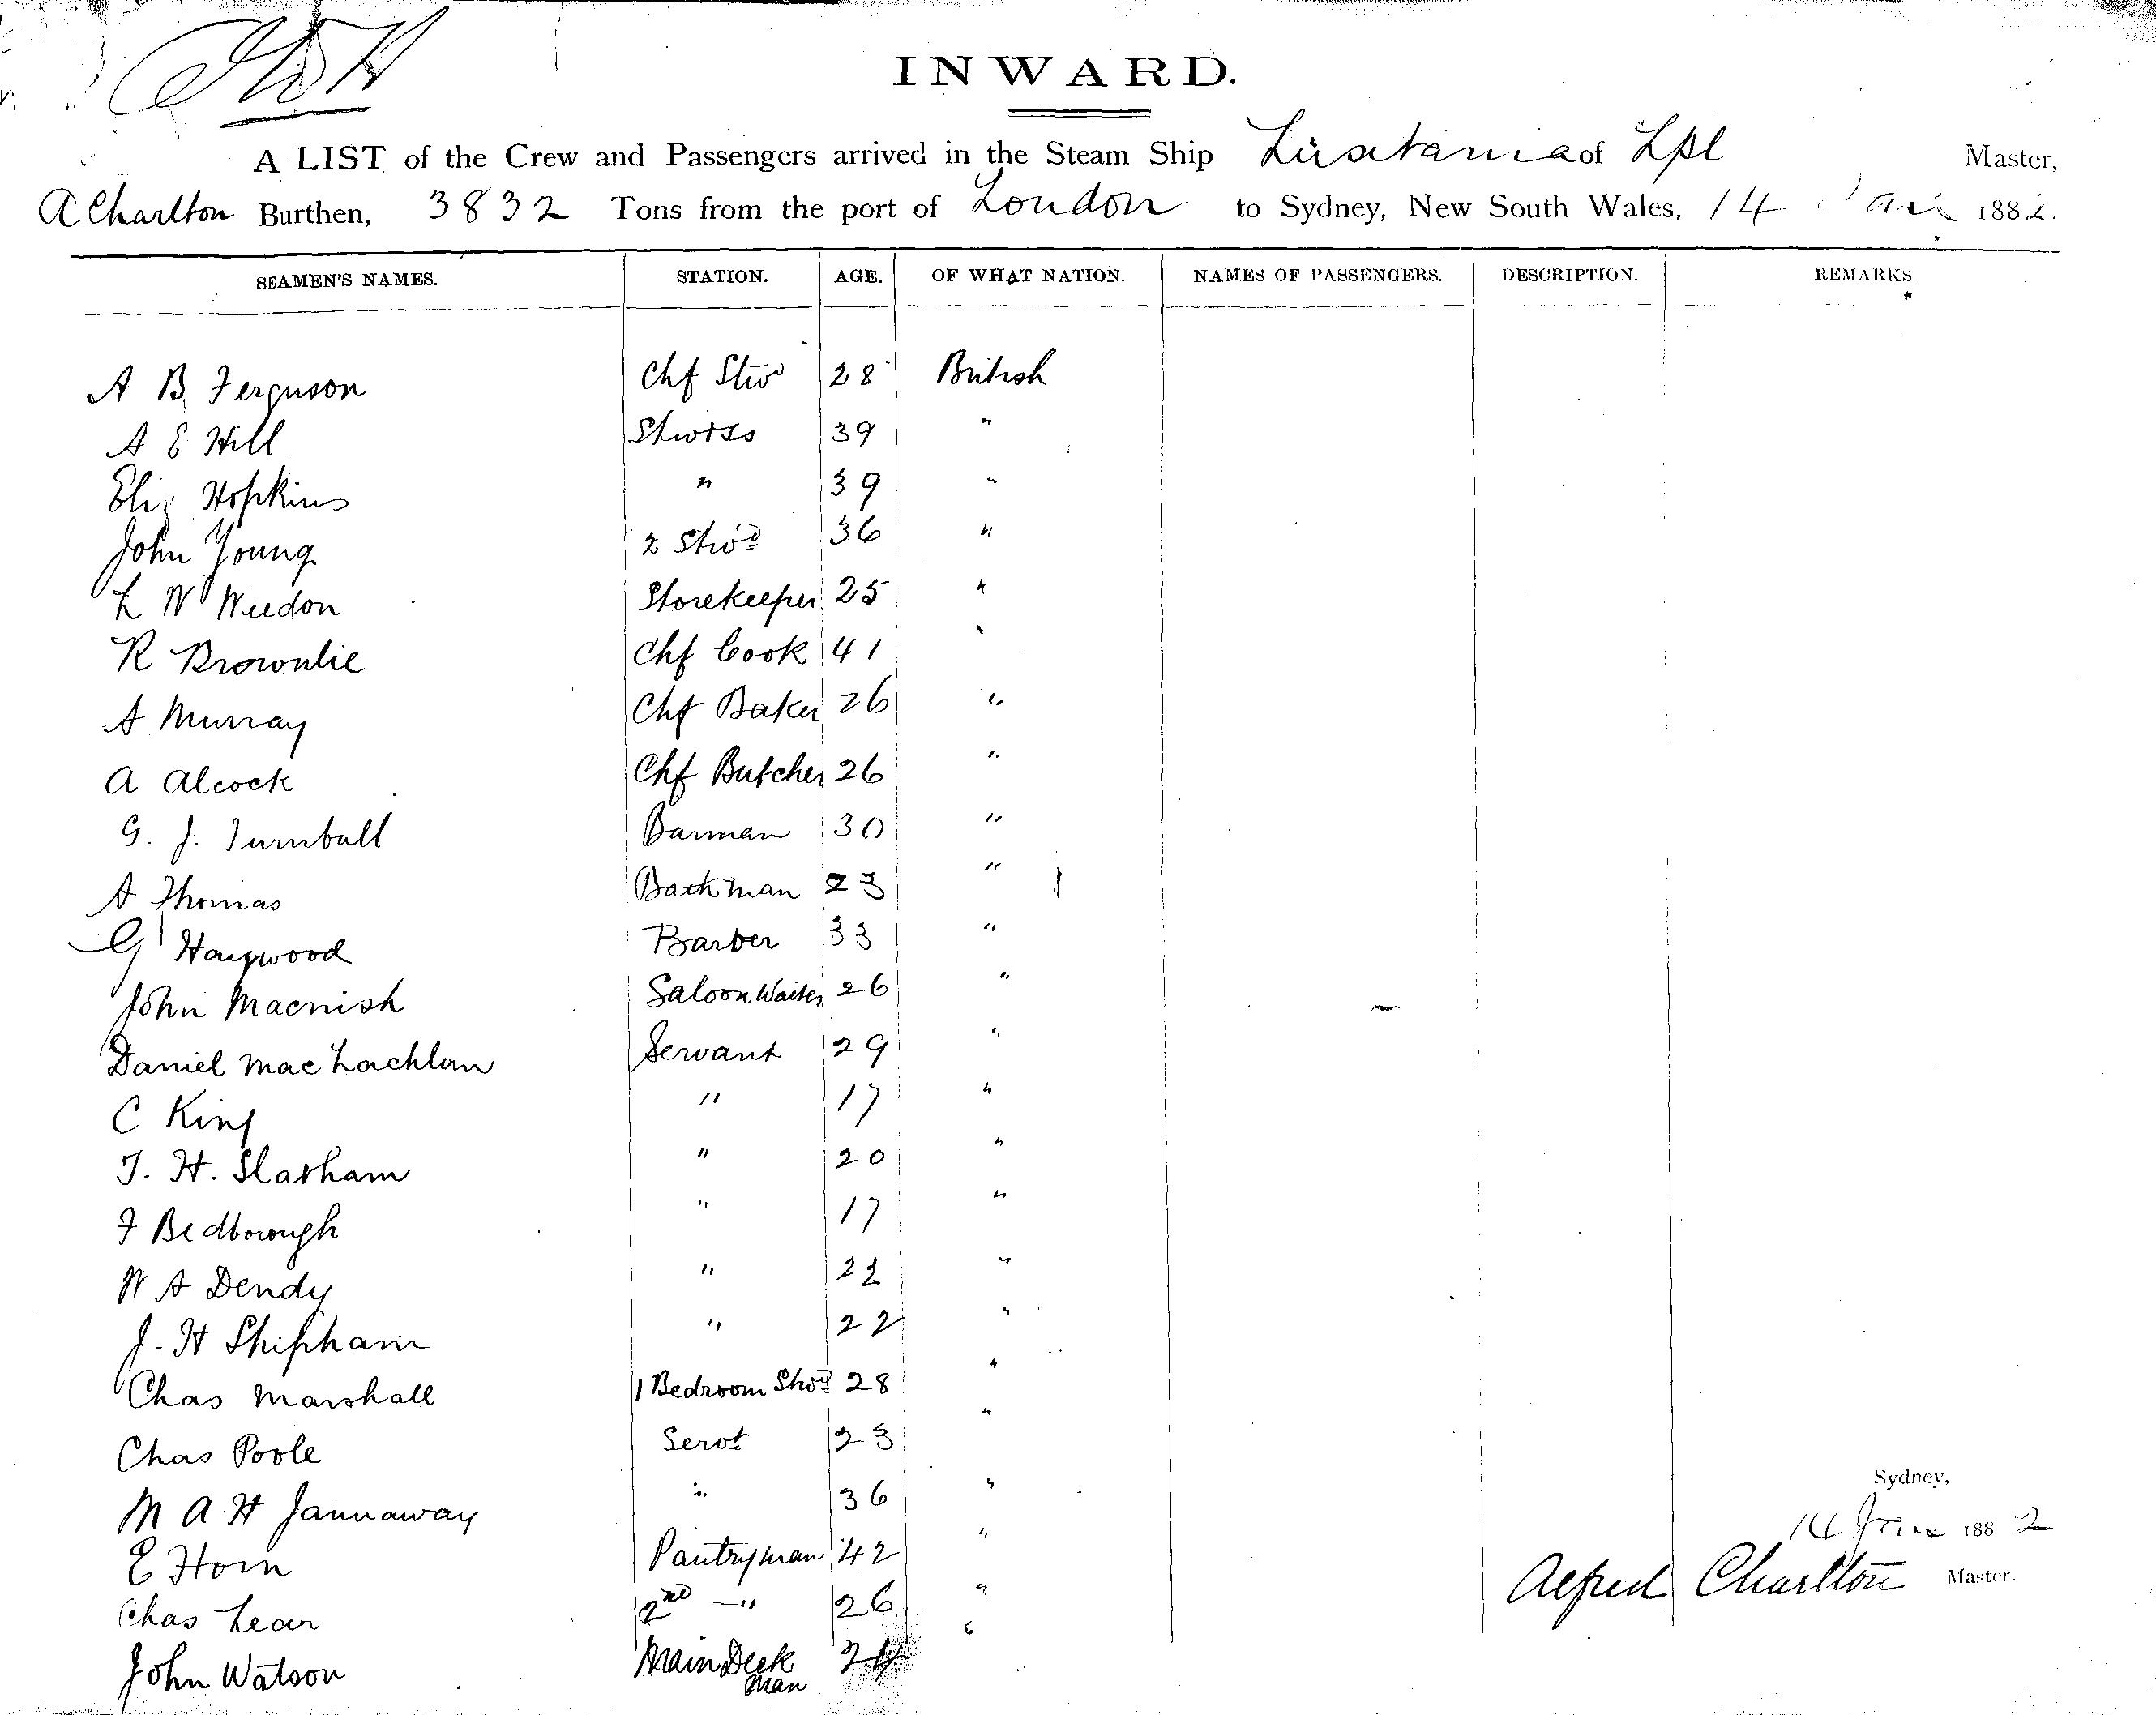 INWARD.
A LIST of the Crew and Passengers arrived in the Steam Ship Lusitania of Lpl Master,
A Charlton Burthen, 3832 Tons from the port of London to Sydney, New South Wales, 14 Jan 1882.
SEAMEN'S NAMES. STATION. AGE. OF WHAT NATION. NAMES OF PASSENGERS. DESCRIPTION. REMARKS.
A B Ferguson Chf Stwd 28 British
A E Hill Stwdss 39 "
Eliz Hopkins " 39 "
John Young 2 Stwd 36 "
L W Weedon Storekeeper 25 "
R Brownlie Chf Cook 41 "
A Murray Chf Baker 26 "
A Alcock Chf Butcher 26 "
G. J. Turnbull Barman 30 "
A Thomas Bathman 23 "
G Haywood Barber 33 "
John Macnish Saloon Waiter 26 "
Daniel Mac Lachlan Servant 29 "
C King " 17 "
T. H. Slatham " 20 "
F Bedborough " 17 "
W A Dendy " 22 "
J. H Shipham " 22 "
Chas Marshall 1 Bedroom Stwd 28 "
Chas Poole Servt 23 "
M A H Jannaway " 36 "
E Horn Pantryman 42 "
Chas Lear 2nd — " 26 "
John Watson Main Deck Man "
Sydney,
14 Jan 1882
Alfred Charlton Master.